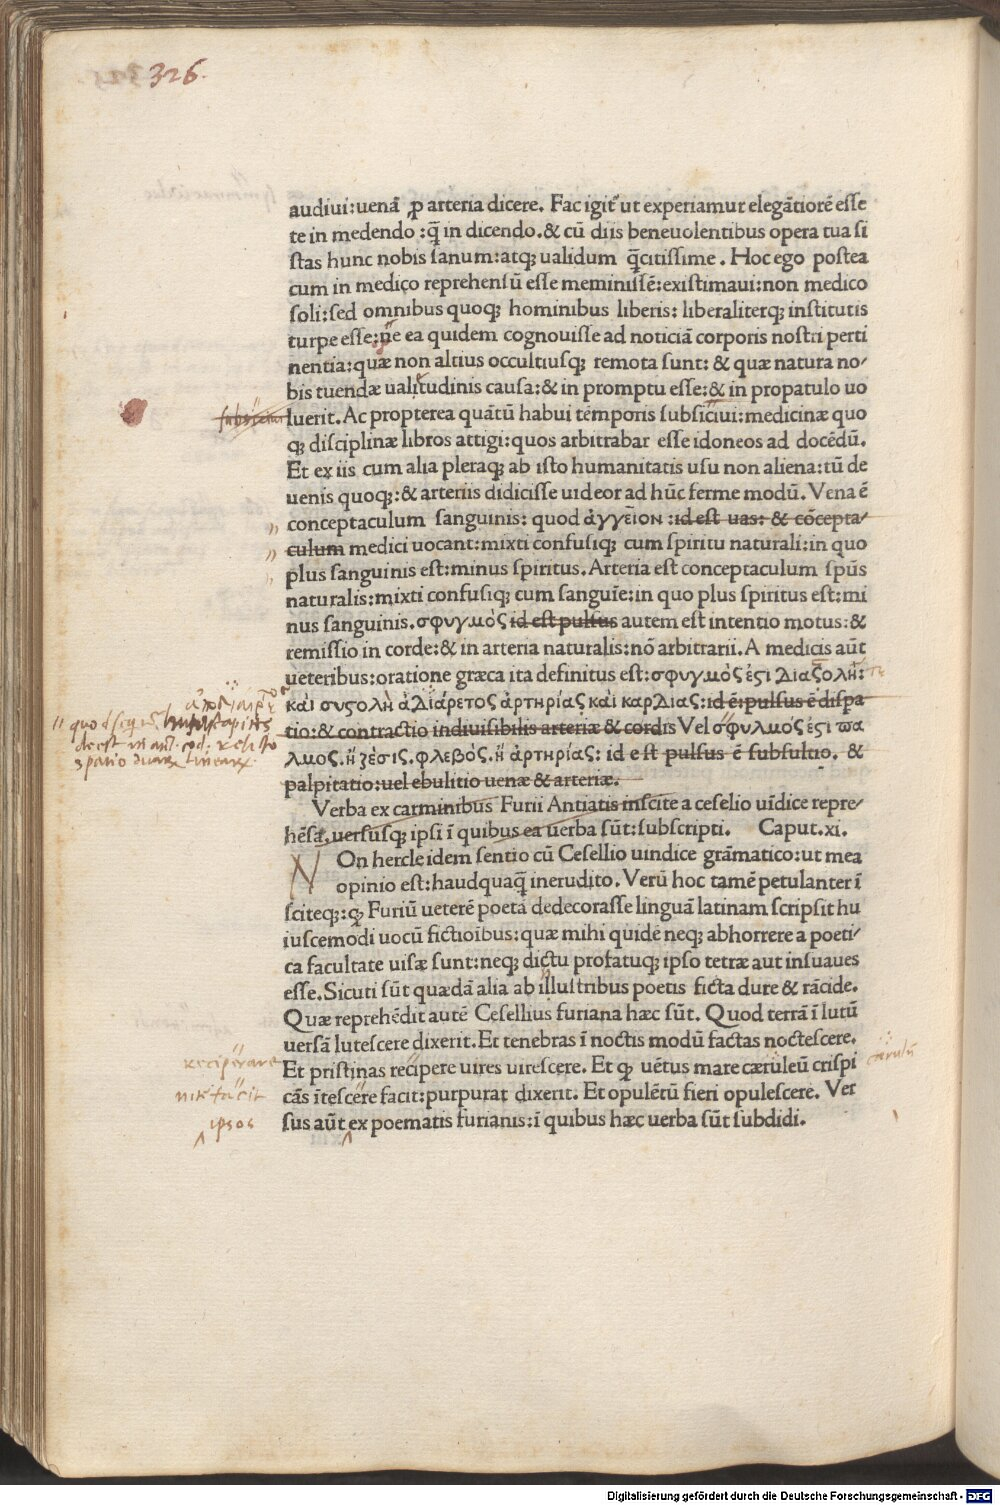 326.
audiui:uenā ꝓ arteria dicere. Fac igit᷑ ut experiamur elegātiorē esse
te in medendo:q̄ in dicendo.& cū diis beneuolentibus opera tua si
stas hunc nobis sanum:atq; ualidum q̄citissime. Hoc ego postea
cum in medico reprehensū esse meminissē:existimaui:non medico
soli:sed omnibus quoq; hominibus liberis: liberaliterq; institutis
turpe esse:ne ea quidem cognouisse ad noticiā corporis nostri perti
nentia:quæ non altius occultiusq; remota sunt: & quæ natura no-
bis tuendæ ualitudinis causa:& in promptu esse:& in propatulo uo
luerit. Ac propterea quātū habui temporis subsiciui:medicinæ quo
q; disciplinæ libros attigi:quos arbitrabar esse idoneos ad docēdū.
Et ex iis cum alia pleraq; ab isto humanitatis usu non aliena:tū de
uenis quoq;:& arteriis didicisse uideor ad hūc ferme modū. Vena ē
conceptaculum sanguinis: quod ἀγγεῖον :id est uas: & cōcepta-
culum medici uocant:mixti confusiq; cum spiritu naturali:in quo
plus sanguinis est:minus spiritus. Arteria est conceptaculum spūs
naturalis:mixti confusiq; cum sanguīe:in quo plus spiritus est:mi
nus sanguinis.σφυγμὸς id est pulsus autem est intentio motus:&
remissio in corde:& in arteria naturalis:nō arbitrarii. A medicis aūt
ueteribus:oratione græca ita definitus est:σφυγμὸς ἐςι διαςολὴ:
κὰι συςολὴ ἀδιάρετος ἀρτηρίας κὰι καρδιας:id ē:pulsus ē dispa
tio:& contractio indiuisibilis arteriæ & cordis Vel σφυλμὸς ἐςι πα
λμος.ἢ ζέσις.φλεβὸς.ἢ ἀρτηρίας: id est pulsus ē subsultio. &
palpitatio:uel ebulitio uenæ & arteriæ.
Verba ex carminibus Furii Antiatis inscite a ceselio uīdice repre-
hēsa.uersusq; ipsi ī quibus ea uerba sūt:subscripti. Caput.xi.
N On hercle idem sentio cū Cesellio uindice grāmatico:ut mea
opinio est:haudquaq̄ inerudito. Verū hoc tamē petulanter ī
sciteq;:ꝙ Furiū ueterē poetā dedecorasse linguā latinam scripsit hu
iuscemodi uocū fictioībus:quæ mihi quidē neq; abhorrere a poeti-
ca facultate uisæ sunt:neq; dictu profatuq; ipso tetræ aut insuaues
esse. Sicuti sūt quædā alia ab illustribus poetis ficta dure & rācide.
Quæ reprehēdit autē Cesellius furiana hæc sūt. Quod terrā ī lutū
uersā lutescere dixerit. Et tenebras ī noctis modū factas noctescere.
Et pristinas recipere uires uirescere. Et ꝙ uētus mare cæruleū crispi
cās ītescere facit:purpurat dixerit. Et opulētū fieri opulescere. Ver
sus aūt ex poematis furianis:ī quibus hæc uerba sūt subdidi.
reciperare
nitefacit
ipsos
Digitalisierung gefördert durch die Deutsche Forschungsgemeinschaft - DFG